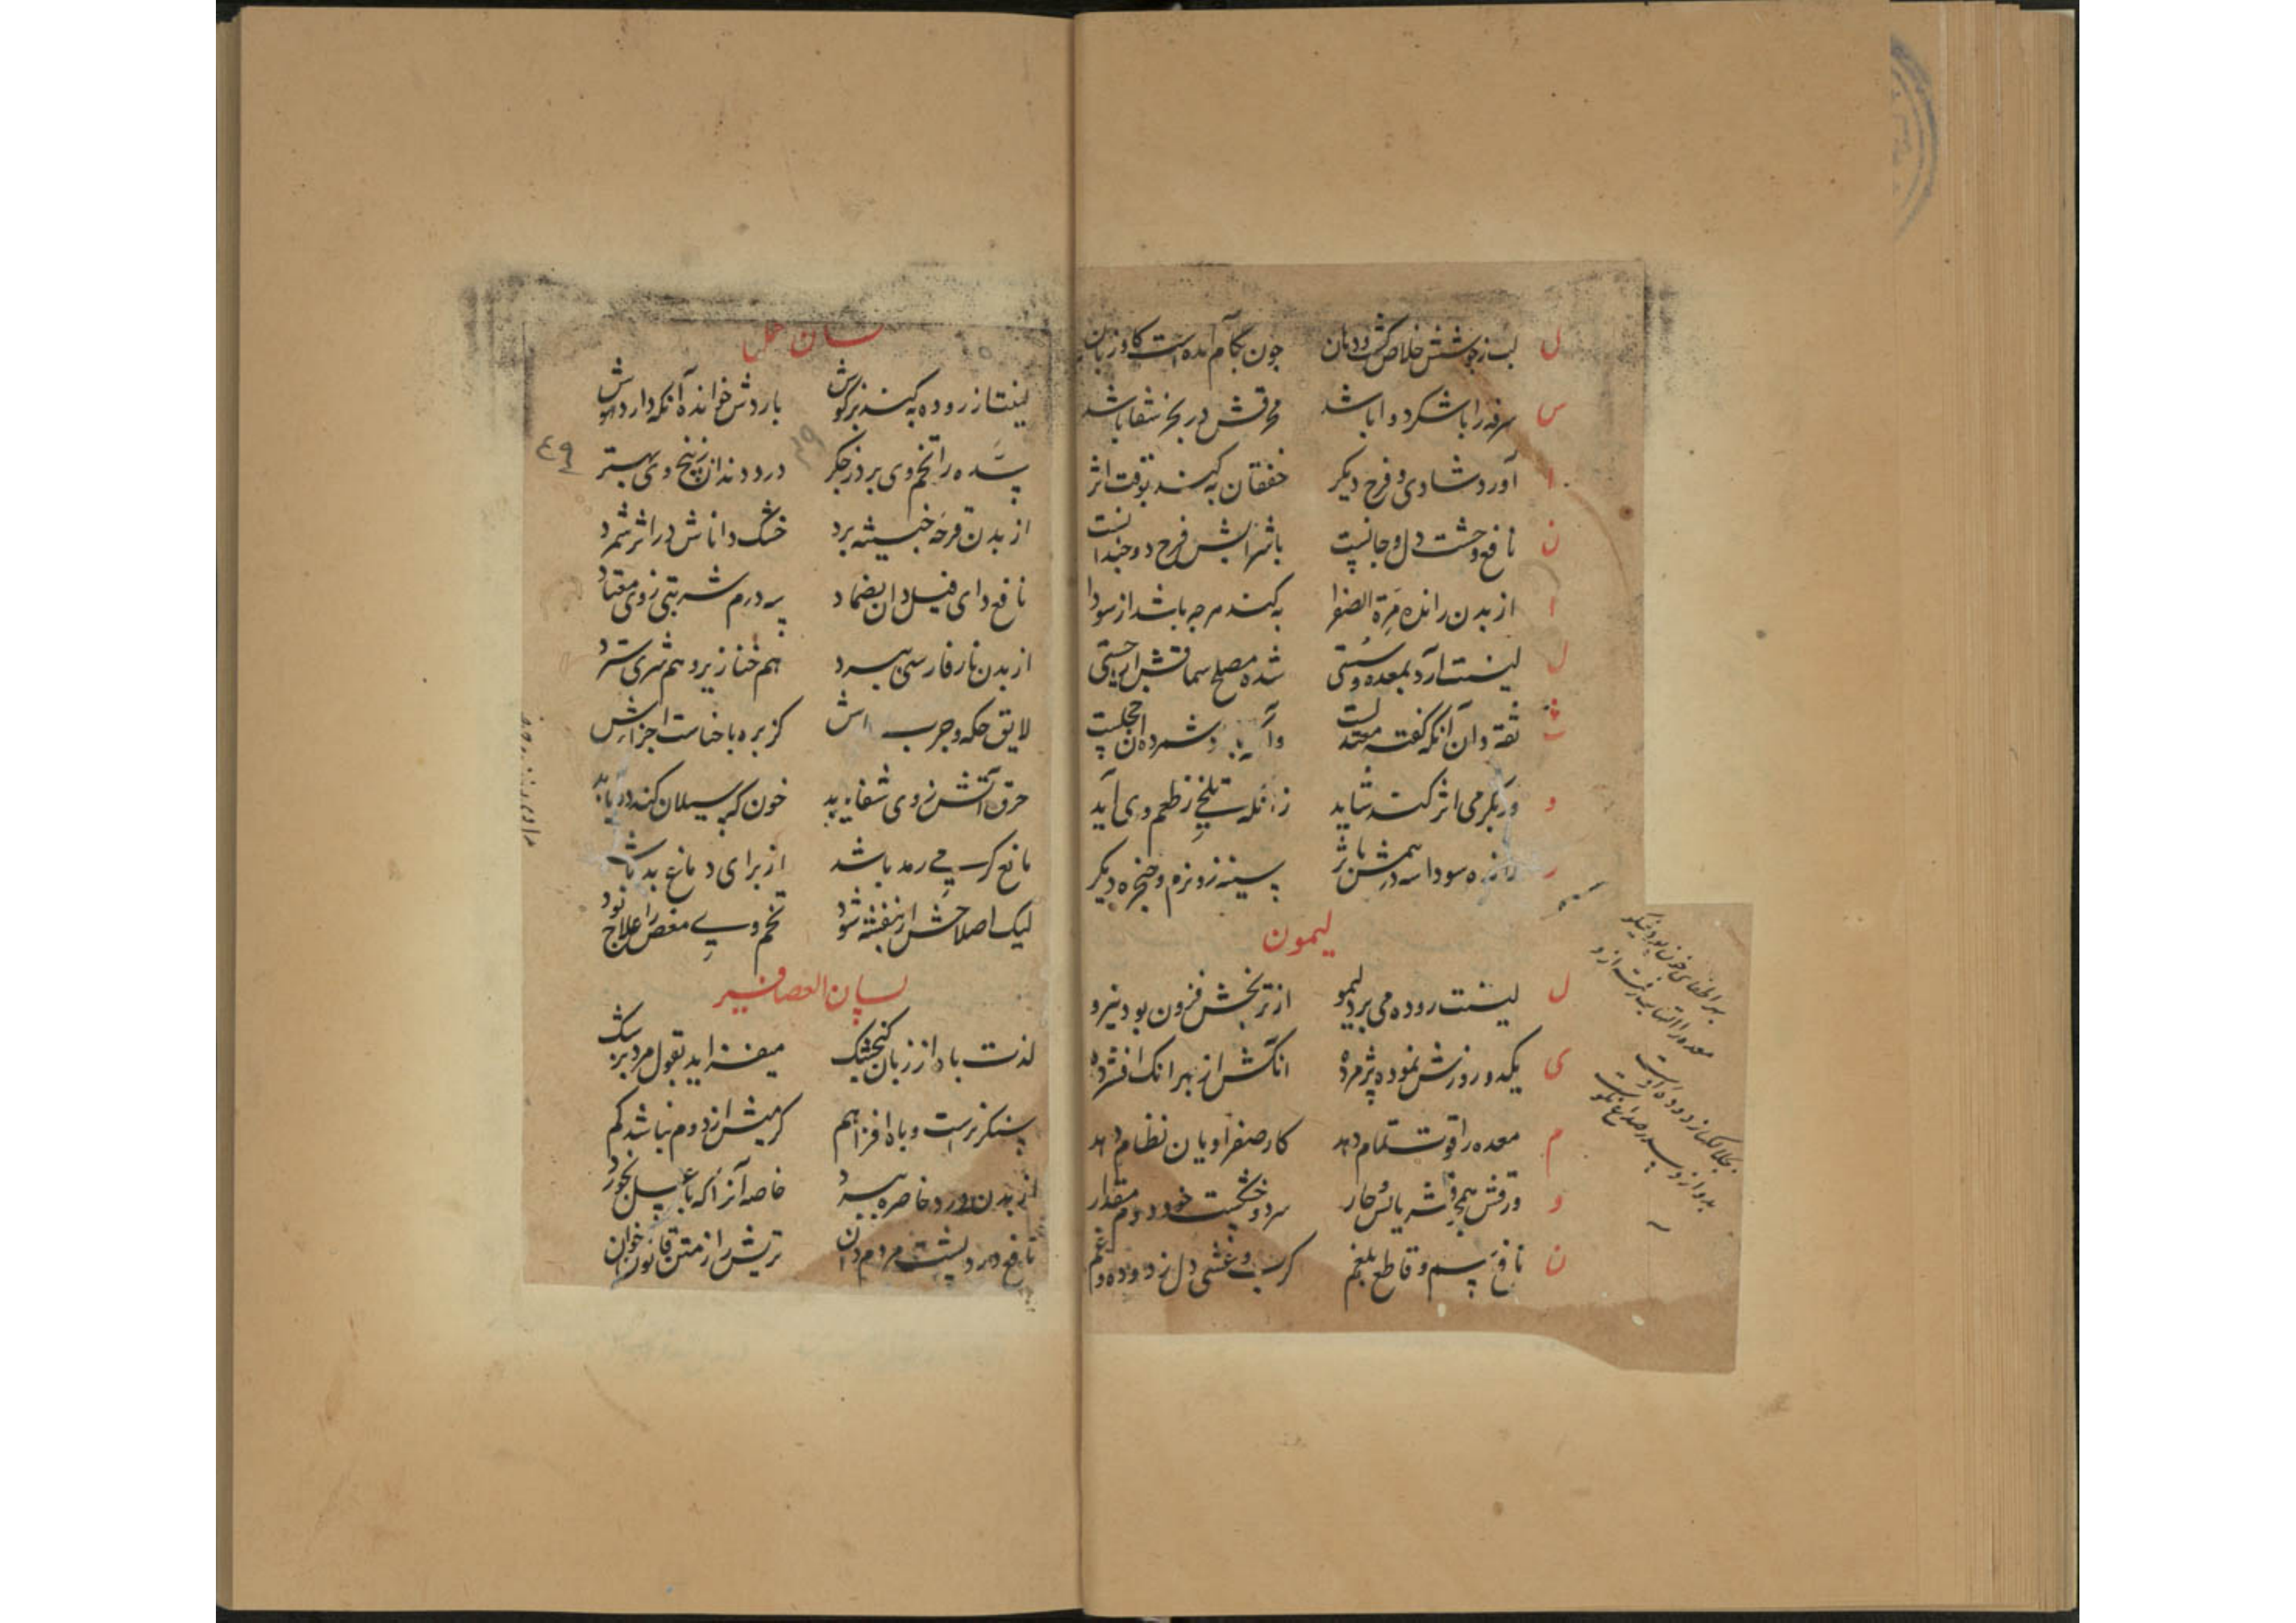 ل لب ز جوشش خلاص کشت و دهان چون بکام آمده است کاوزبان
س سرفه را با شکر دوا باشد محرقش در بخر شفا باشد
ا آورد شادی و فرح دیکر خفقان به کند بقوت اثر
ن نافع وحشت دل و جانست با شرابش فرح دوچندانست
ا از بدن رانده مرة الصفرا به کند هرچه باشد از سودا
ل لینت آرد بمعده و سستی شده مصلح سماقش ار جستی
ث ثقه دان آنکه کفته معتدلست شمرده
و ور بکرمی اثر کند شاید زانکه تلخی ز طعم وی آید
ر سودا سه درمش سینه زو نرم و حنجره دیکر
لیمون
ل لینت روده می برد لیمو از ترنجش فزون بود نیرو
ی یکدو روزش نموده پژمرده انکش از بهر انک افشرده
م معده را قوت تمام دهد کار صفراویان نظام دهد
و ورقش همچو قشر یابس و حار سرد و خشکست خود دوم مقدار
ن نافع سم و قاطع بلغم کرب و غشی دل زدوده و غم
معده را التهاب رفت ازو
لسان حمل
لینت از روده به کند بر کوش باردش خوانده آنکه دارد هوش
سده را تخم وی برد ز جکر درد دندان ز بیخ وی بهتر
از بدن قرحه خبیثه برد خشک داناش در اثر شمرد
نافع دای فیل دان بضماد سه درم شربتی ز وی معتاد
از بدن نار فارسی ببرد هم خنازیر و هم شری سترد
لایق حکه و جرب کزبره با خناست اجزاش
حرق آتش ز وی شفا یابد خون که سیلان کند
مانع کر پی رمد باشد از برای دماغ بد باشد
لیک اصلاحش از بنفشه شود تخم وی پی مغص را علاج بود
لسان العصافیر
لذت باه از زبان کنجشک میفزاید بقول مرد بزشک
سنکریزست و باه افزا هم کرمیش از دوم نباشد کم
از بدن درد خاصره ببرد خاصه آنرا که با عسل بخورد
نافع درد پشت مردم دان تریش را از متن قانون خوان
٤٩